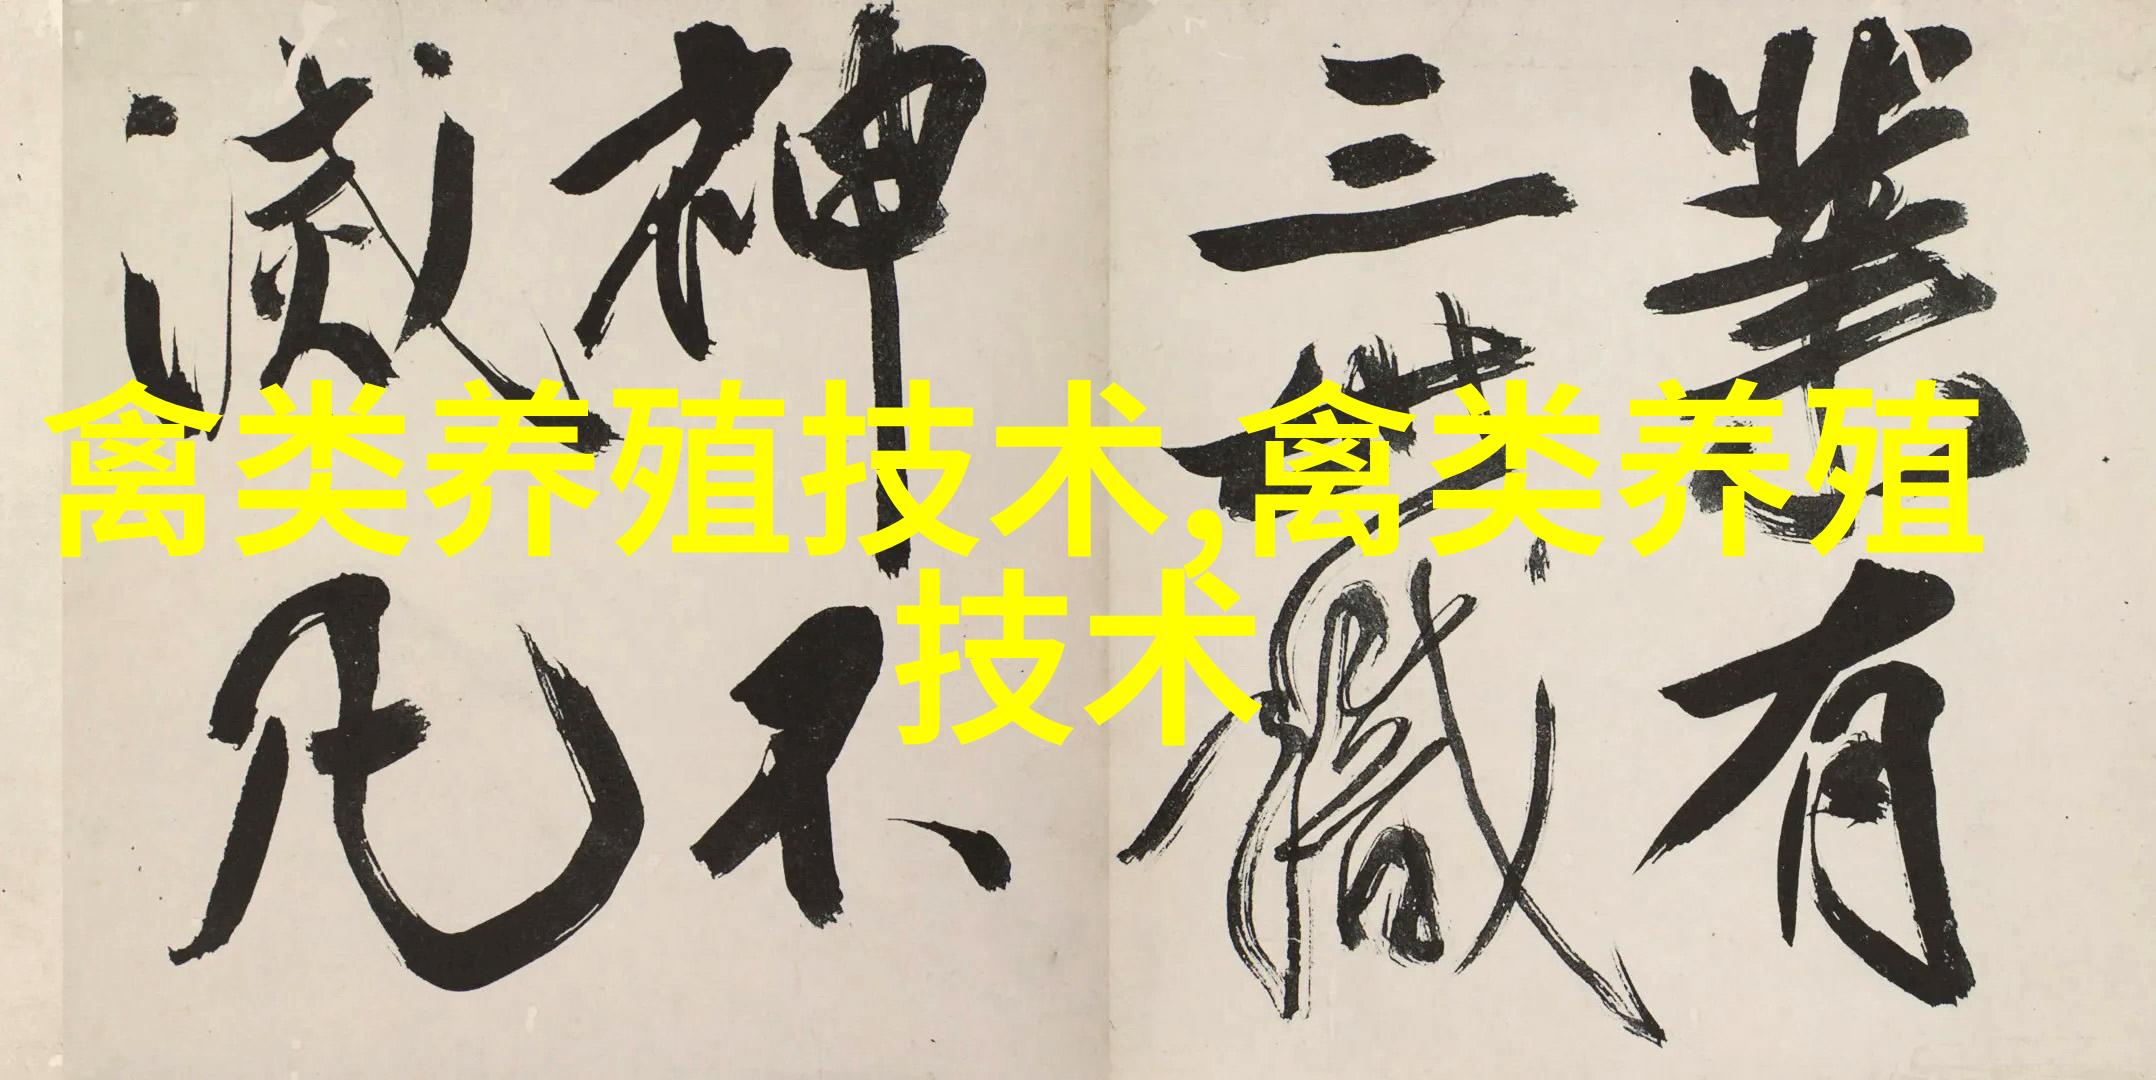 禽类养殖技术,禽类养殖
技术
業有
三世識
神不
滅凡